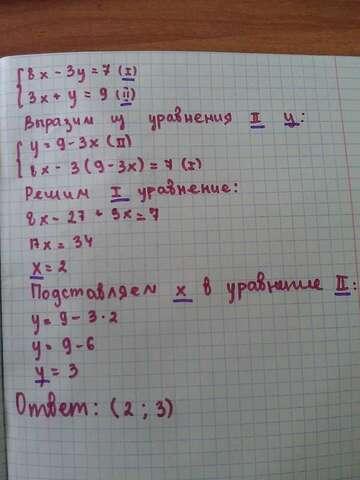 8x - 3y = 7 (I)
3x + y = 9 (II)
Впразим из уравнения II y:
y = 9 - 3x (II)
8x - 3(9 - 3x) = 7 (I)
Решим I уравнение:
8x - 27 + 9x = 7
17x = 34
x = 2
Подставляем x в уравнение II:
y = 9 - 3 · 2
y = 9 - 6
y = 3
Ответ: (2 ; 3)